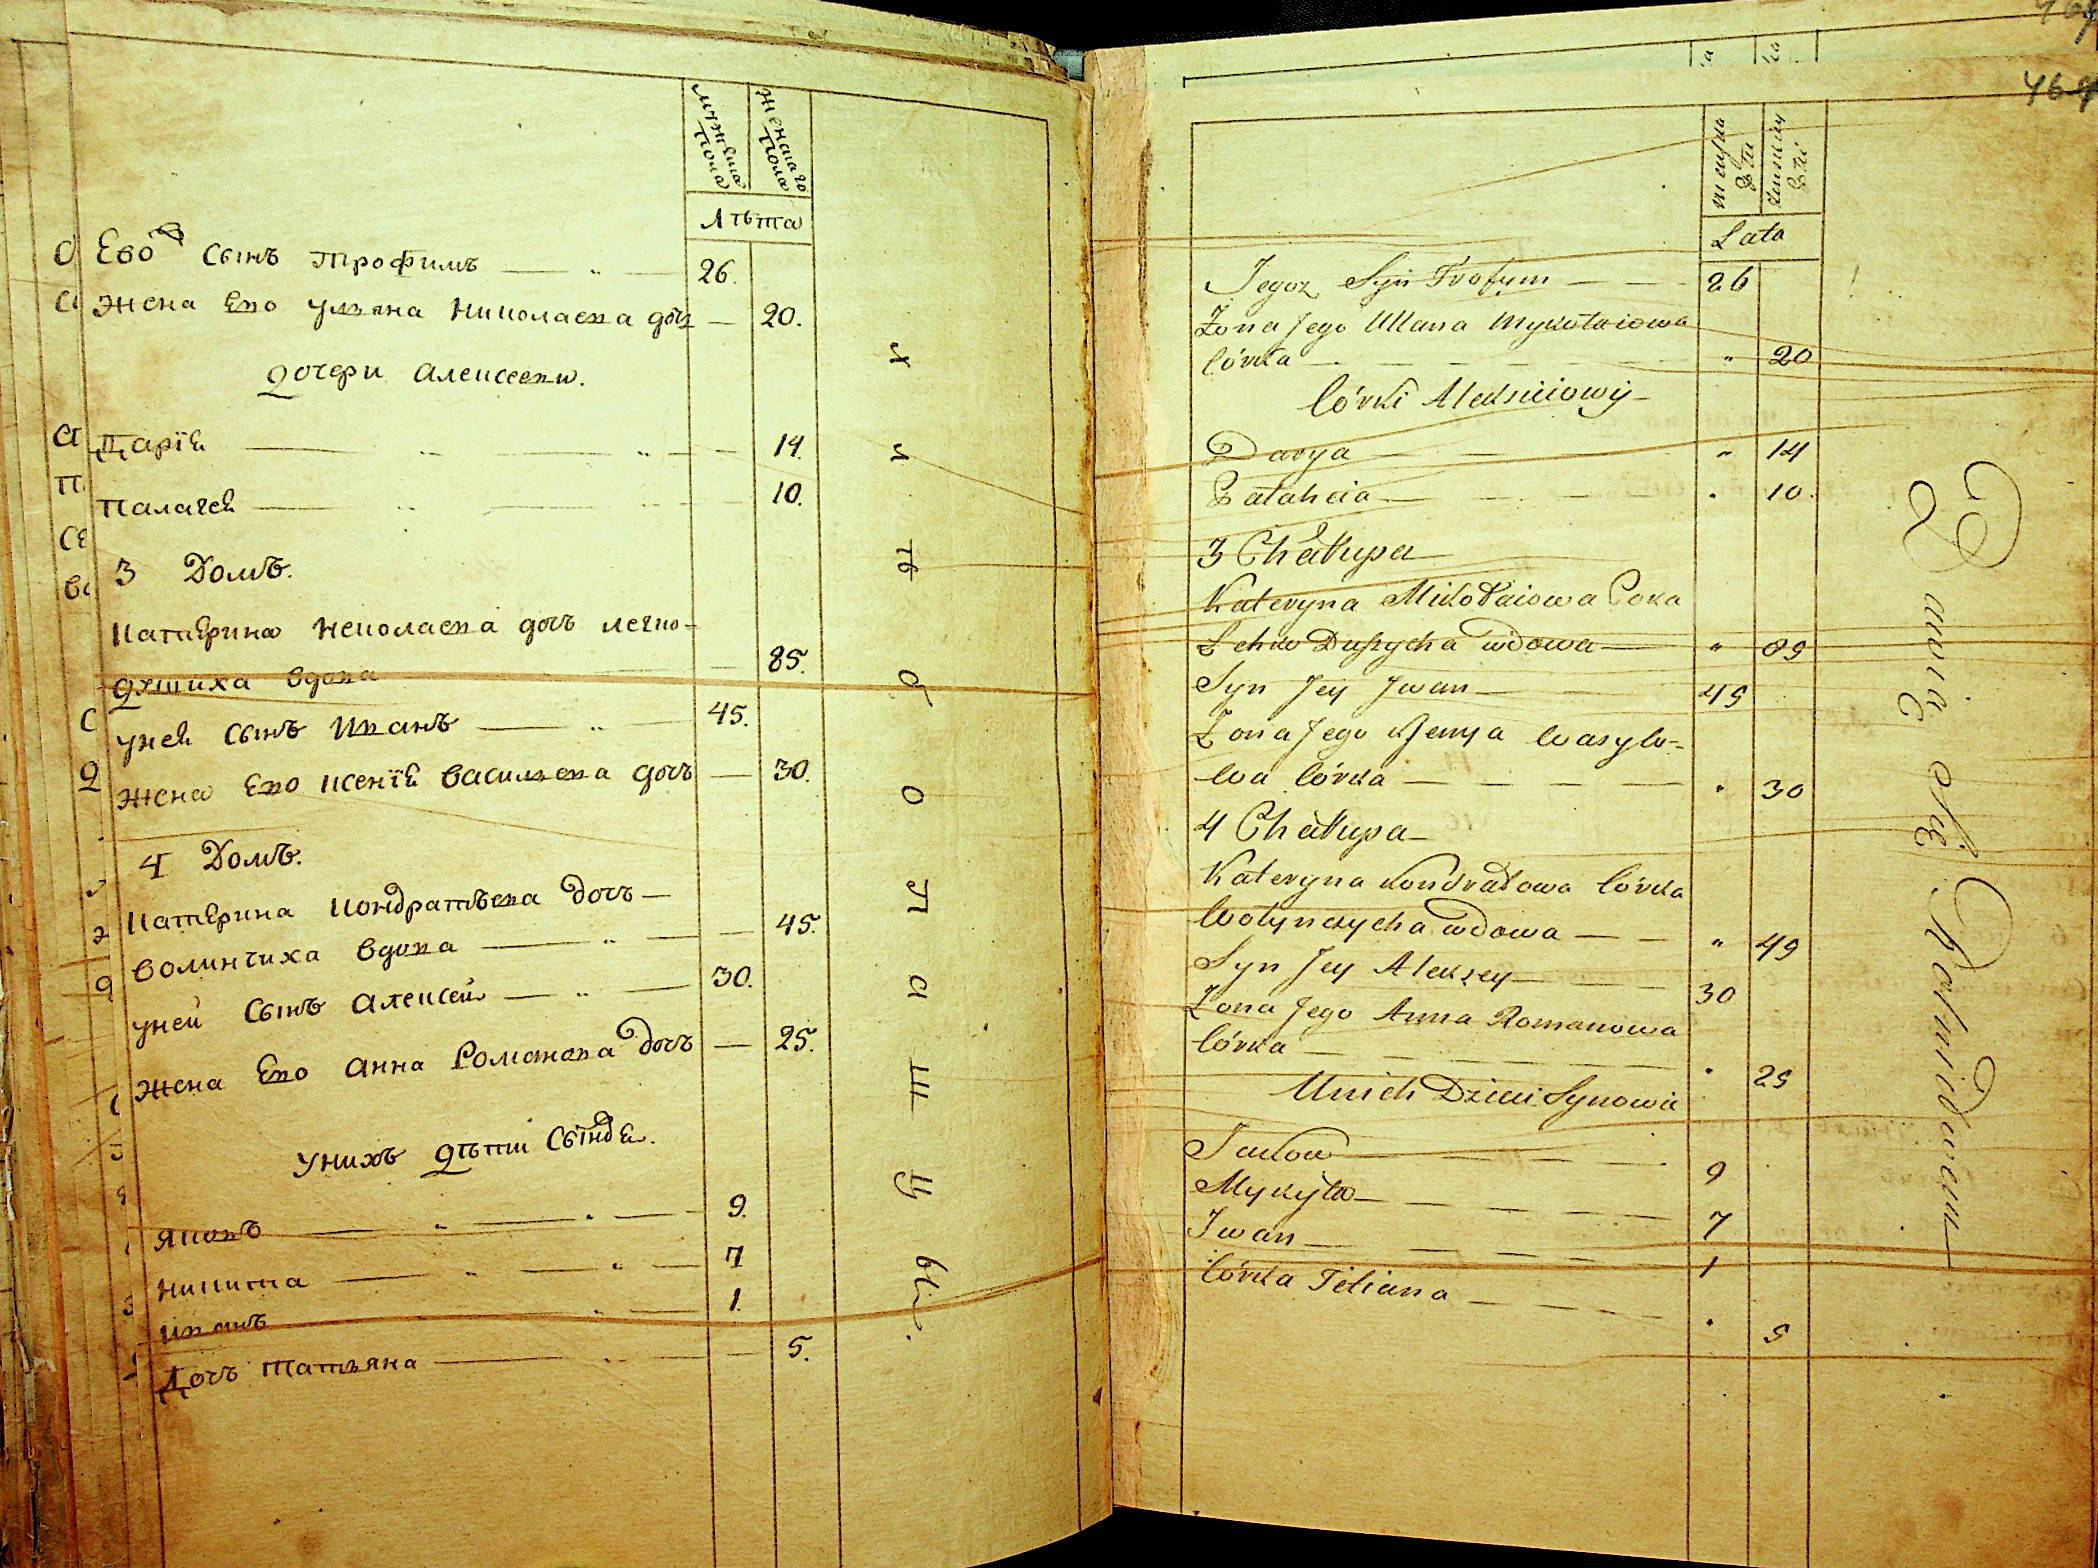 мужеска пола
женскаго пола
Лѣта
Ево сынъ трофимъ — „ — 26.
жена Ево ульяна николаева дочь — 20.
дочери алексеевы.
Дарія — „ — „ — 14.
палагея — „ — „ — 10.
3 Домъ.
катерина неколаева дочь легко-
душиха вдова — 85.
унея сынъ иванъ — „ — 45.
жена Ево ксенія васильева дочъ — 30.
4 Домъ.
катерина кондратьева дочъ —
волинчиха вдова — „ — 45.
уней сынъ алексей — „ — 30.
жена Ево анна Романова дочъ — 25.
унихъ дѣти сынове.
яковъ — „ — „ — 9.
никита — „ — „ — 7
иванъ — „ — 1.
Дочъ татьяна — „ — 5.
468
Lata
Jegoż Syn Trofym — — 26
Żona Jego Ullana Mykołaiowa
Córka — — — — „ 20
Córki Alekseiowy
Darya — — — „ 14
Pałaheia — — — „ 10.
3 Chałupa
Kateryna Mikołaiowa Corka
Lehko Duszycha wdowa — „ 85
Syn Jey Jwan — — 45
Żona Jego Xenya Wasylo-
wa Córka — — — — „ 30
4 Chałupa
Kateryna Kondratowa Córka
Wołynczycha wdowa — — „ 45
Syn Jey Alexey — — 30
Żona Jego Anna Romanowa
Córka — — — — „ 25
U nich Dzieci Synowie
Jakow — — — — 9
Mykyta — — — — 7
Jwan — — — — 1
Córka Tetiana — — — „ 5